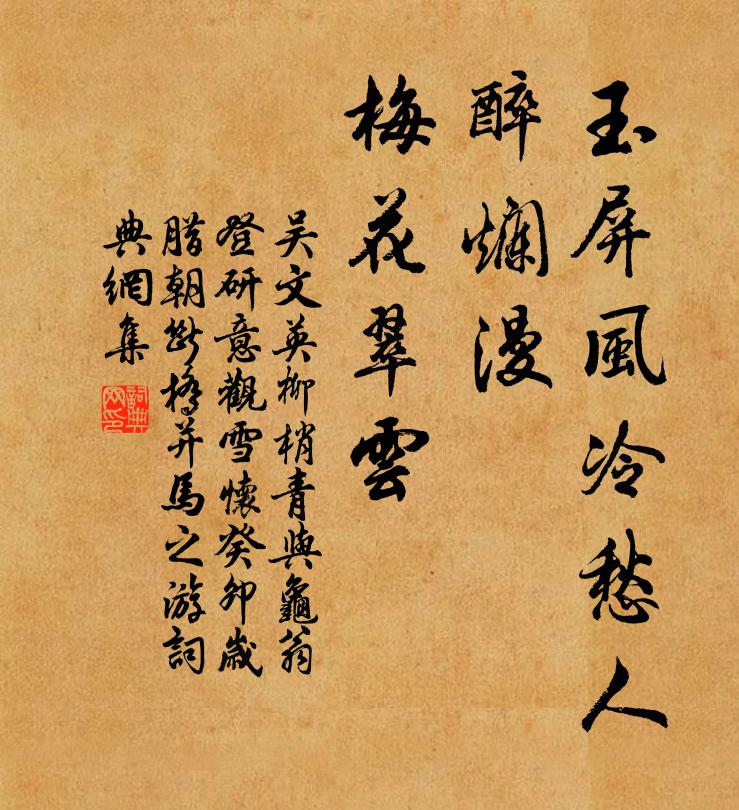 玉屏風冷愁人
醉爛漫
梅花翠雲
吴文英柳梢青與龜翁
登研意觀雪懷癸卯歲
腊朝斷橋并馬之游詞
典網集
詞典網印